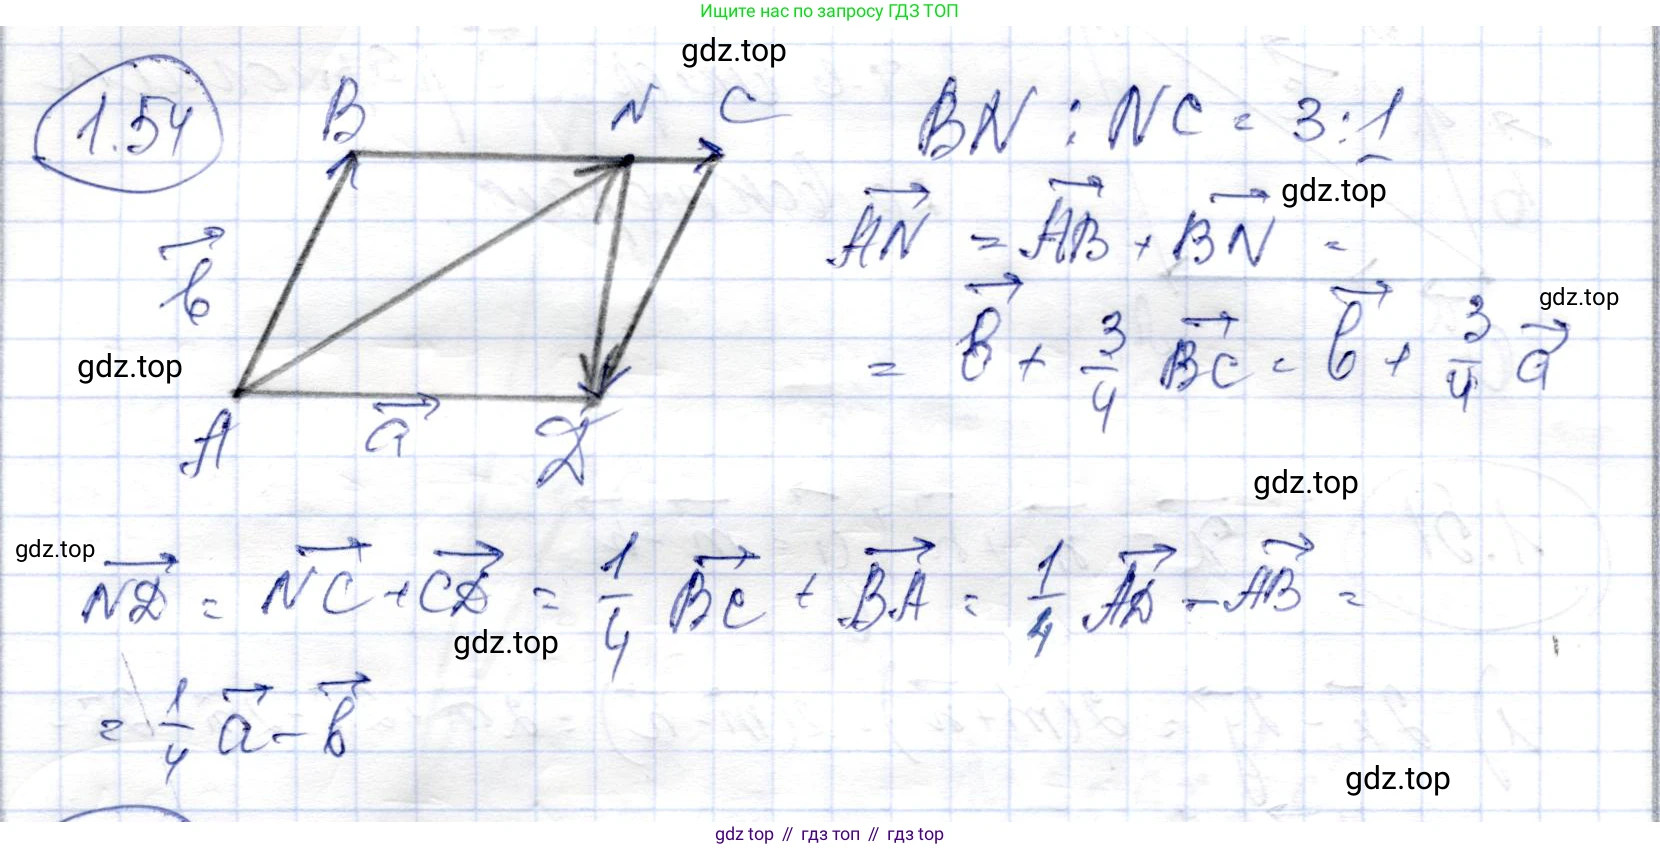 Ищите нас по запросу ГДЗ ТОП
gdz.top
1.54
B N C
BN : NC = 3:1
gdz.top
AN = AB + BN =
b
gdz.top
= b + 3/4 BC = b + 3/4 a
gdz.top
A a D
gdz.top
gdz.top
ND = NC + CD = 1/4 BC + BA = 1/4 AD - AB =
gdz.top
= 1/4 a - b
gdz.top
gdz top // гдз топ // gdz top